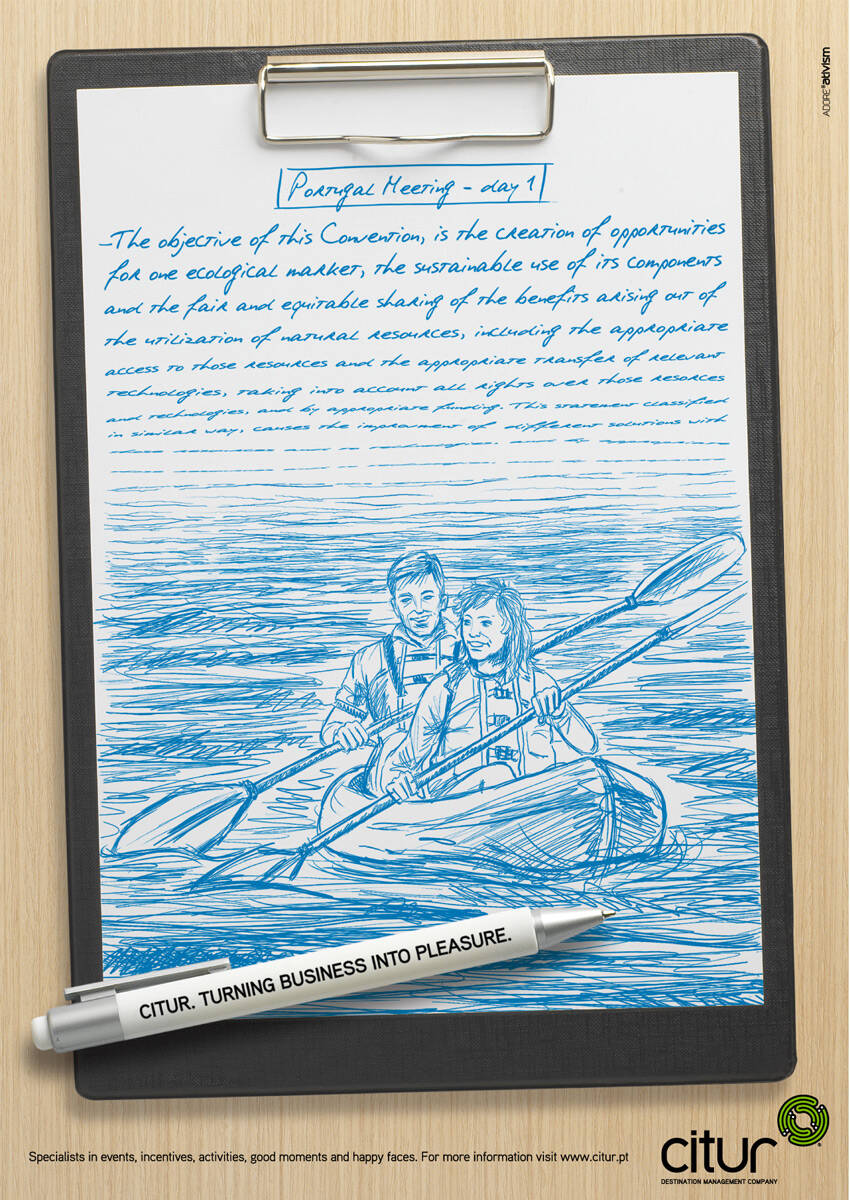 ADORE®ativism
PORTUGAL MEETING - day 1
-The objective of this Convention, is the creation of opportunities
for one ecological market, the sustainable use of its components
and the fair and equitable sharing of the benefits arising out of
the utilization of natural resources, including the appropriate
access to those resources and the appropriate transfer of relevant
technologies, taking into account all rights over those resorces
and technologies, and by appropriate funding. This statement classified
in similar way, causes the improvment of different solutions with
those resources and to technologies, and by appropriate
CITUR. TURNING BUSINESS INTO PLEASURE.
Specialists in events, incentives, activities, good moments and happy faces. For more information visit www.citur.pt
citur®
DESTINATION MANAGEMENT COMPANY